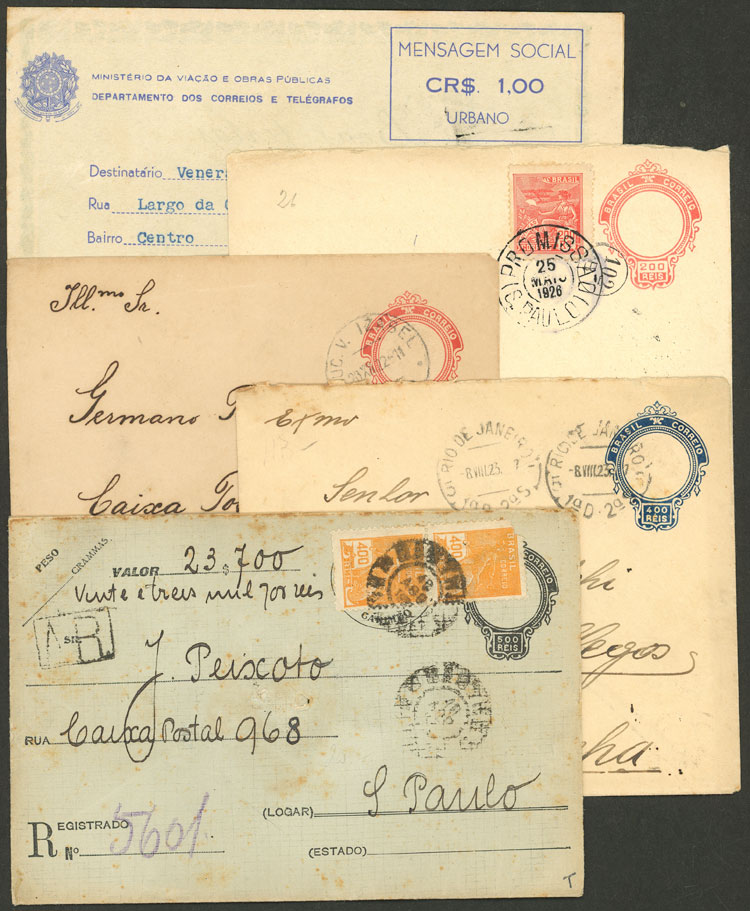 MINISTÉRIO DA VIAÇÃO E OBRAS PÚBLICAS
DEPARTAMENTO DOS CORREIOS E TELÉGRAFOS
MENSAGEM SOCIAL
CR$. 1,00
URBANO
Destinatário Veners
Rua Largo da
Bairro Centro
26
BRASIL
200
BRASIL CORREIO
200
REIS
PROMISSÃO
102
25
MAIO
1926
(S. PAULO)
Illmo Sr.
BRASIL CORREIO
Germano
Caixa
Exmo
BRASIL CORREIO
400
REIS
RIO DE JANEIRO
8.VIII.23.
1ªD.2ªS
RIO DE JANEIRO
8.VIII.23.
1ªD.2ª
Senhor
PESO GRAMMAS
VALOR 23,700
Vinte e treis mil 700 reis
400
400
BRASIL CORREIO
500
REIS
AR
SR.
J. Peixoto
RUA Caixa Postal 968
(LOGAR) S Paulo
REGISTRADO
Nº 5601
(ESTADO)
T